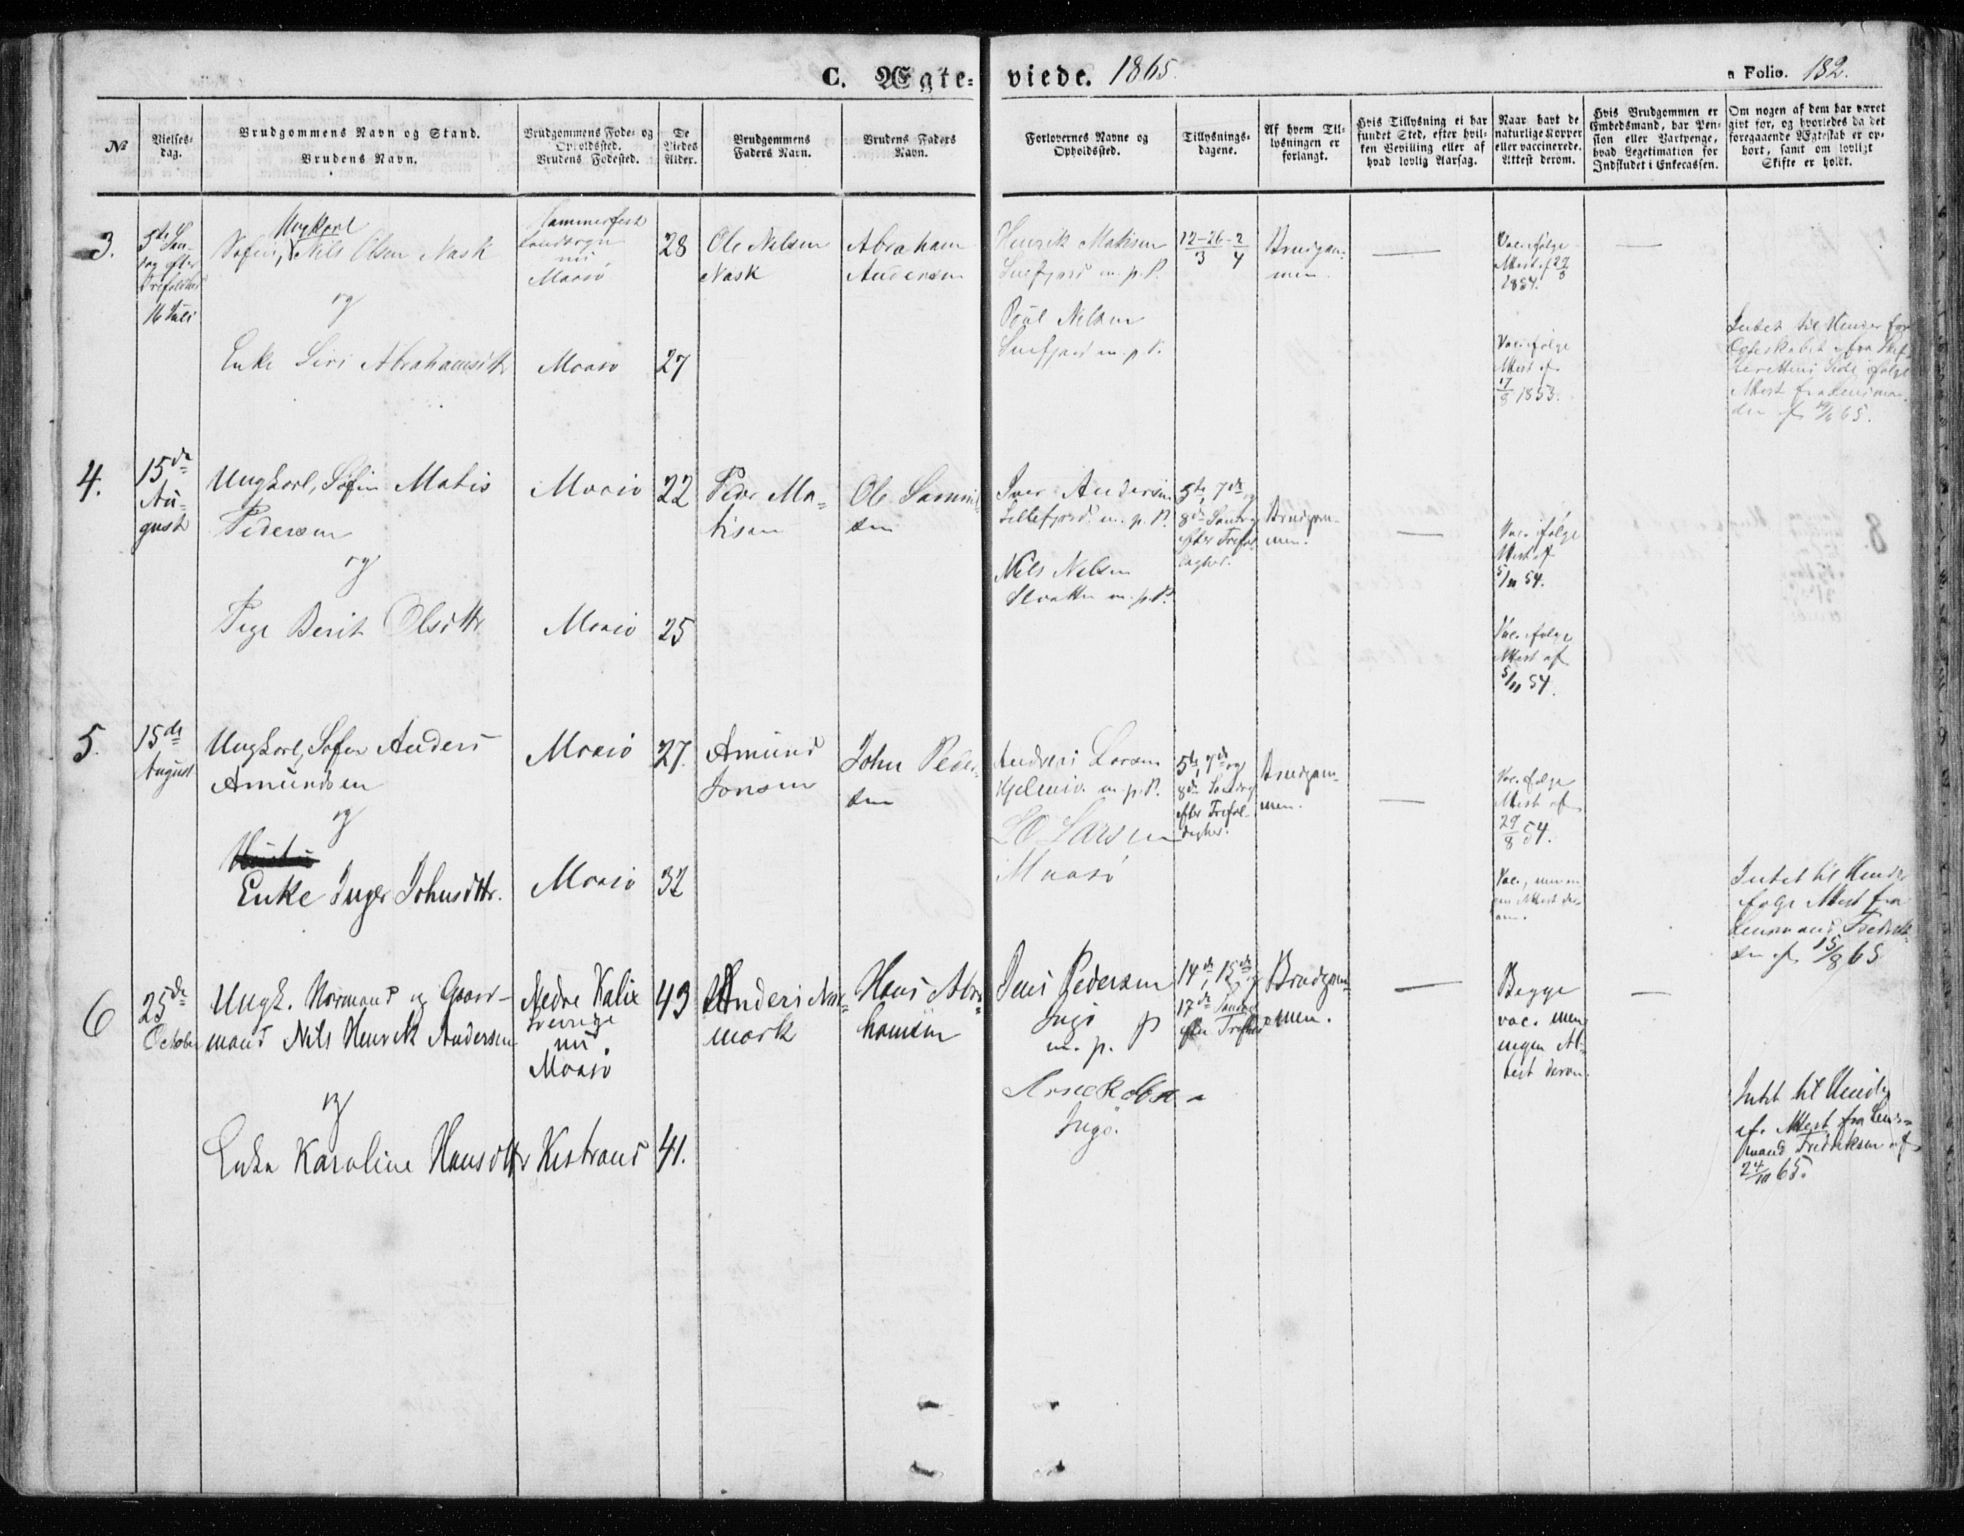 C. Ægte- viede. 1865. Folio. 182.
No
Vielses-
dag.
Brudgommens Navn og Stand.
Brudens Navn.
Brudgommens Føde- og
Opholdssted.
Brudens Fødested.
De
Viedes
Alder.
Brudgommens
Faders Navn.
Brudens Faders
Navn.
Forlovernes Navne og
Opholdssted.
Tillysnings-
dagene.
Af hvem Til-
lysningen er
forlangt.
Hvis Tillysning ei har
fundet Sted, efter hvil-
ken Bevilling eller af
hvad lovlig Aarsag.
Naar havt de
naturlige Kopper
eller vaccinerede.
Attest derom.
Hvis Brudgommen er
Embedsmand, har Pen-
sion eller Vartpenge,
hvad Legetimation for
Indskudet i Enkecassen.
Om nogen af dem har været
gift før, og hvorledes da det
foregaaende Ægteskab er op-
hørt, samt om lovligt
Skifte er holdt.
3.
5te Søn-
dag efter
16 Juli
Ungkarl
Søfin, Nils Olsen Nask
og
Enke Siri Abrahamsdtr
Hammerfest
Landsogn
nu
Maasø
Maasø
28
27
Ole Nilsen
Nask
Abraham
Andersen
Henrik Mathisen
Snefjord m. p. P.
Poul Nilsen
Snefjord m. p. P.
12-26-2
3 4
Brudgom-
men.
—
Vac. ifølge
Attest af 29/3
1854.
Vac. ifølge
Attest af
17/8 1853.
—
Intet til Hinder for
Egteskabet fra Skif-
terettens Side ifølge
Attest fra Lensman-
den af 65.
4.
15de
Au-
gust
Ungkarl, Søfin Matis
Pedersen
og
Pige Berit Olsdtr.
Maasø
Maasø
22
25
Peder Ma-
tisen
Ole Samuel-
sen
Iver Andersen
Lillefjord m. p. P.
Nils Nilsen
m. p. P.
5te, 7de og
8de Søndag
efter Trefol-
dighed.
Brudgom-
men.
—
Vac. ifølge
Attest af
5/11 54.
Vac. ifølge
Attest af
5/11 54.
5.
15de
August
Ungkarl, Søfin Anders
Amundsen
og
Enke Inger Johnsdtr.
Maasø
Maasø
27.
32
Amund
Jonsen
John Peder-
sen
Andreas Larsen
Hjelmsø. m. p. P.
L O Larsen
Maasø
5te, 7de og
8de Søndag
efter Trefol-
dighed.
Brudgom-
men.
—
Vac. ifølge
Attest af
29/8 54.
Vac., men in-
gen Attest der-
om.
Intet til Hinder
ifølge Attest fra
Lensmand Fredrik-
sen af 15/8 65
6
25de
October
Ungk. Normand og Gaard-
mand Nils Henrik Andersen
og
Enke Karoline Hansdtr
Nedre Kalix
Sverrige
nu
Maasø
Kistrand
43
41.
Anders Nor-
mark
Hans Abra-
hamsen
Jens Pedersen
Ingø P
m. p.
Ingø.
14de, 15de og
17de Søndag
efter Trefold
Brudgom-
men.
—
Begge
vac. men
ingen At-
test derom.
—
Intet til Hinder
if. Attest fra Lens-
mand Fredriksen af
24/10 65.